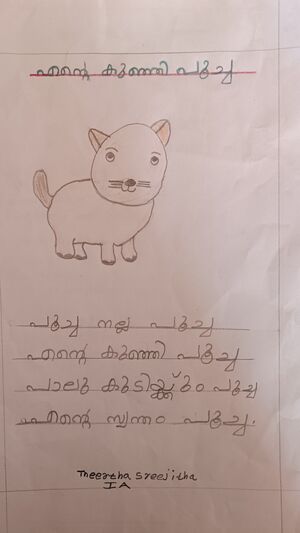 എന്റെ കുഞ്ഞി പൂച്ച
പൂച്ച നല്ല പൂച്ച
എന്റെ കുഞ്ഞി പൂച്ച
പാലു കുടിയ്ക്കും പൂച്ച
എന്റെ സ്വന്തം പൂച്ച.
Theertha Sreejitha
I A